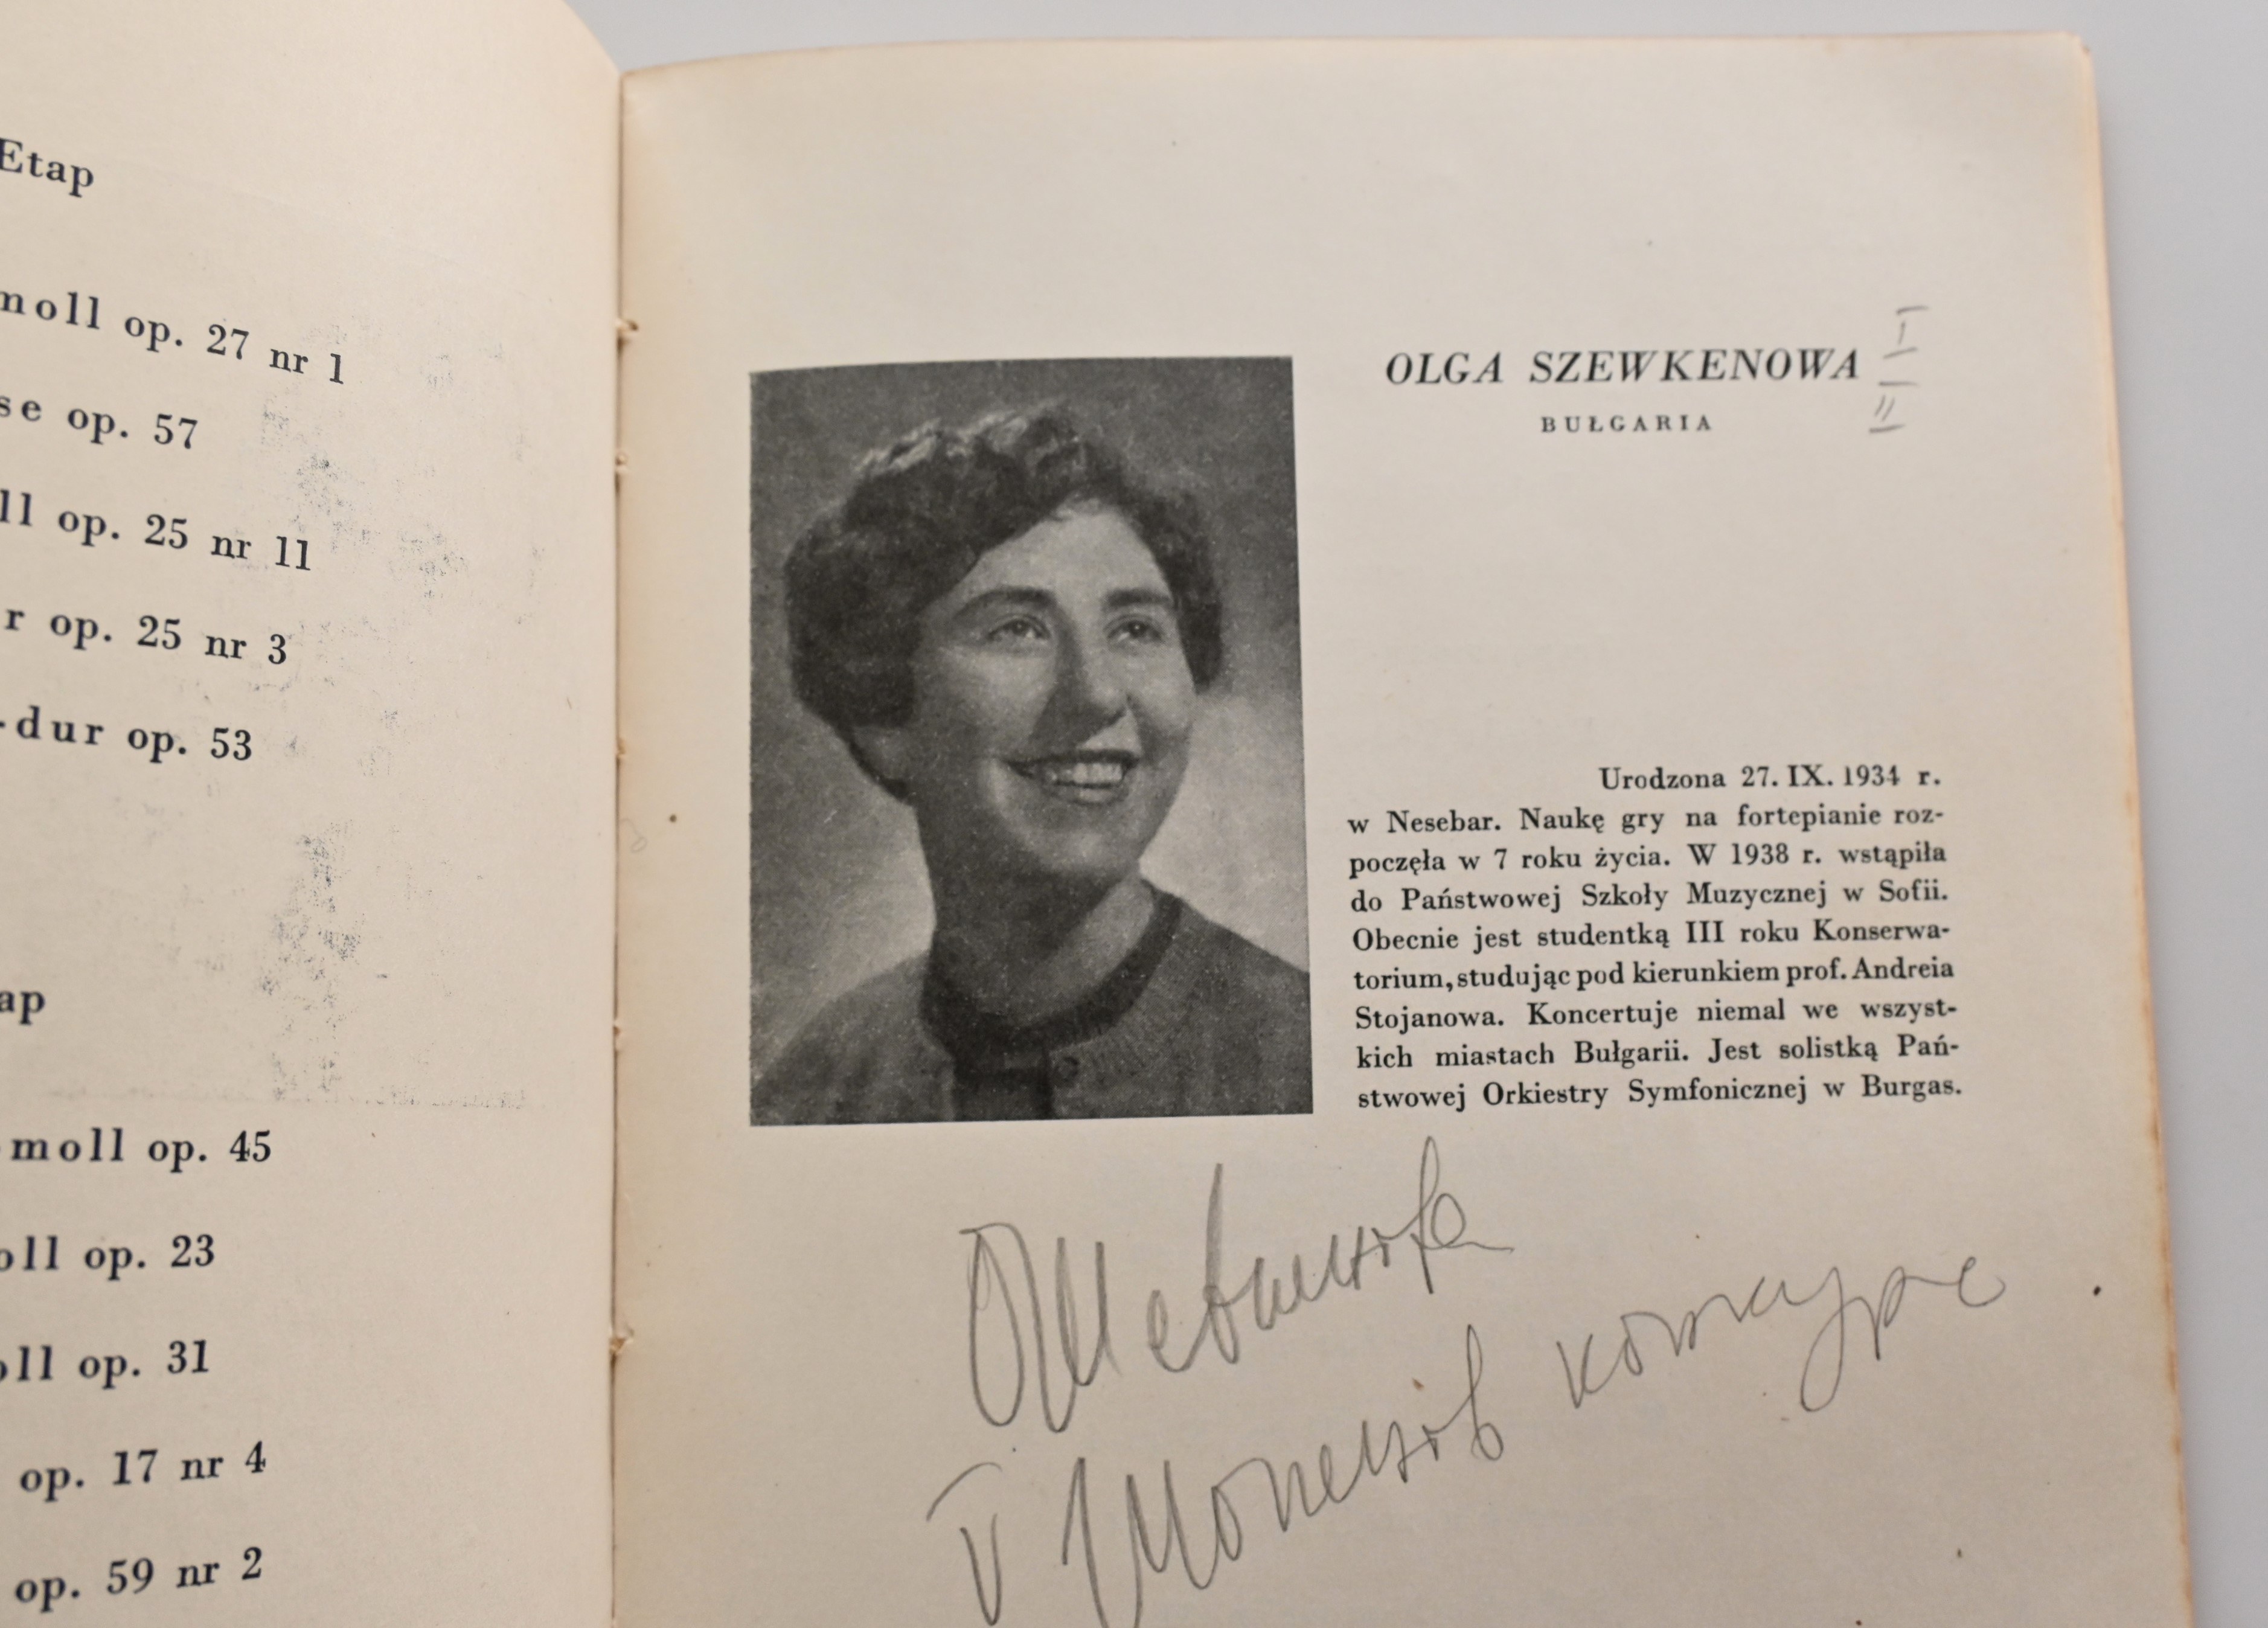 Etap
moll op. 27 nr 1
se op. 57
ll op. 25 nr 11
r op. 25 nr 3
-dur op. 53
ap
moll op. 45
oll op. 23
oll op. 31
op. 17 nr 4
op. 59 nr 2
OLGA SZEWKENOWA I
BUŁGARIA II
Urodzona 27. IX. 1934 r.
w Nesebar. Naukę gry na fortepianie roz-
poczęła w 7 roku życia. W 1938 r. wstąpiła
do Państwowej Szkoły Muzycznej w Sofii.
Obecnie jest studentką III roku Konserwa-
torium, studując pod kierunkiem prof. Andreia
Stojanowa. Koncertuje niemal we wszyst-
kich miastach Bułgarii. Jest solistką Pań-
stwowej Orkiestry Symfonicznej w Burgas.
ОШевкенова
V Шопенов конкурс